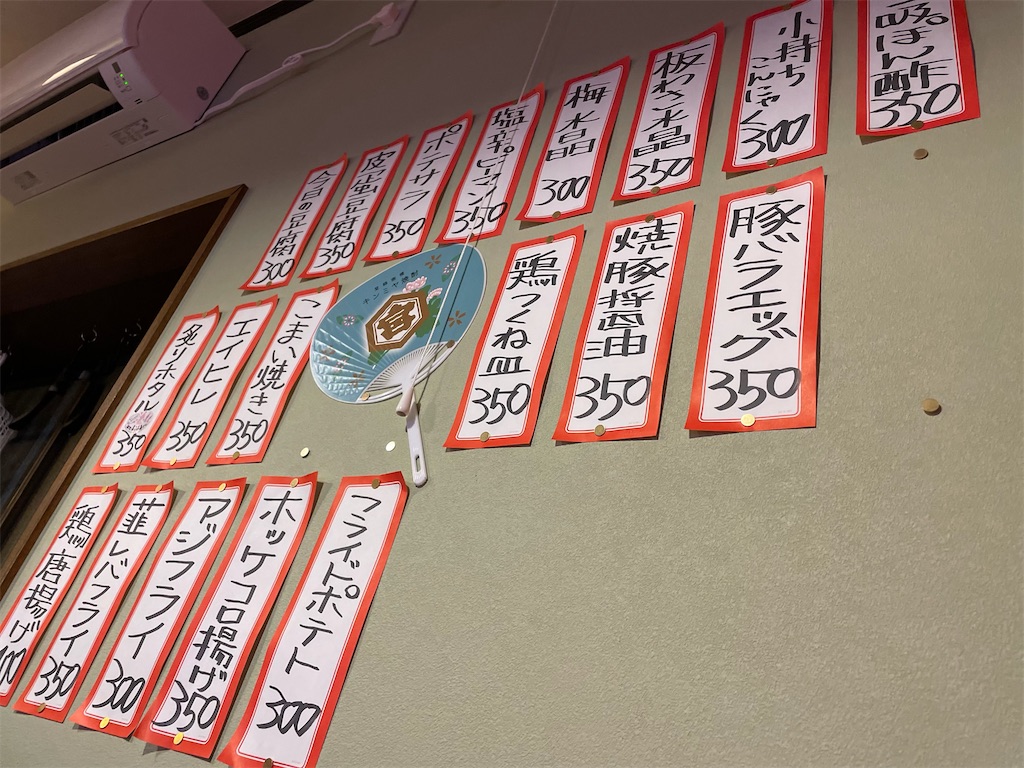 ぽん酢
350
小持ち
こんにゃく
300
板わさ水晶
350
梅水晶
300
ピーマン
350
ポテサラ
350
皮蛋豆腐
350
豆腐
300
豚バラエッグ
350
焼豚醤油
350
鶏つくね皿
350
キンミヤ焼酎
宮
こまい焼き
350
エイヒレ
350
炙りホタル
350
フライドポテト
300
ホッケコロ揚げ
350
アジフライ
300
韮レバフライ
350
鶏唐揚げ